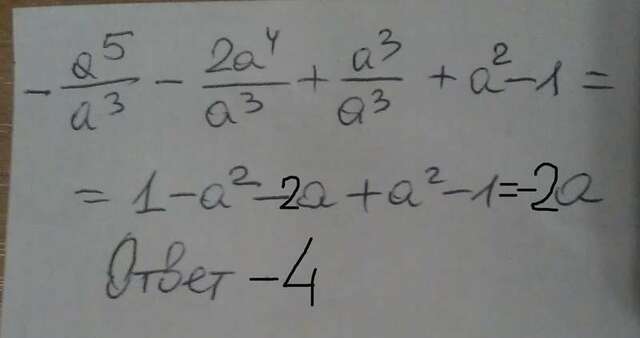 - a⁵/a³ - 2a⁴/a³ + a³/a³ + a² - 1 =
= 1 - a² - 2a + a² - 1 = -2a
Ответ -4